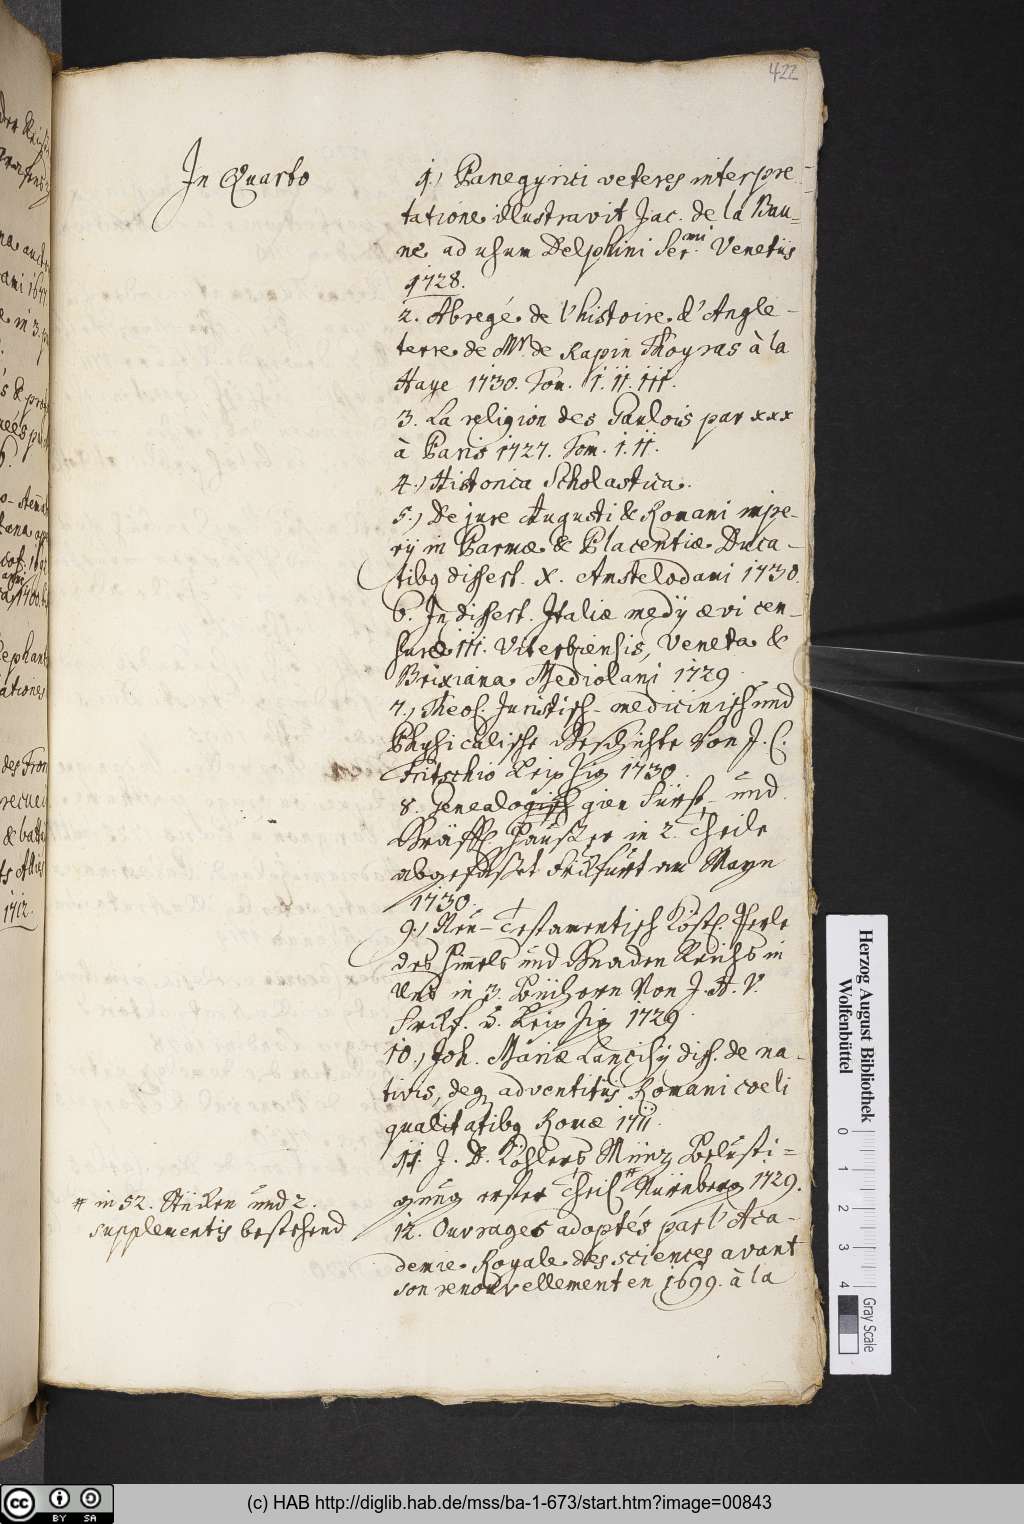 422
In Quarto
1.) Panegyrici veteres interpre-
tatione illustravit Jac. de la Bau-
ne ad usum Delphini Ser.mi Venetiis
1728.
2. Abregé de l'histoire d'Angle-
terre de Mr. de Rapin Thoyras à la
Haye 1730. Tom. I. II. III.
3. La religion des Gaulois par xxx
à Paris 1727. Tom. I. II.
4.) Historica Scholastica.
5.) De jure Augusti & Romani impe-
rij in Parmæ & Placentiæ Duca-
tibq dissert. X. Amstelodami 1730.
6. In dissert. Italiæ medij ævi cen-
suræ III. Viterbiensis, Veneta &
Brixiana. Mediolani 1729.
7.) Theol. Juristisch- medicinisch und
Physicalische Geschichte von J. C.
Fritschio Leipzig 1730.
8. Genealogisch gien Fürst- und
Gräffl. Häußer in 2. Theile
abgefasset Frkfurt am Mayn
1730.
9.) Neu-Testamentisch Köstl. Perle
des Himmels und Gnaden Reichs in
Uns in 3. Büchern Von J. A. V.
Frkf. u. Leipzig 1729.
10.) Joh. Mariæ Lancisij diss. de na-
tivis, deq adventitiis Romani coeli
qualitatibq Romæ 1711.
11. J. D. Köhlers Müntz Belusti=
gung erster Theil # Nürnberg 1729.
# in 52. Stücken und 2.
supplementis bestehend
12. Ouvrages adoptés par l'Aca-
demie Royale des sciences avant
son renouvellement en 1699. à la
Herzog August Bibliothek
Wolfenbüttel
0 1 2 3 4
Gray Scale
cc BY SA
(c) HAB http://diglib.hab.de/mss/ba-1-673/start.htm?image=00843